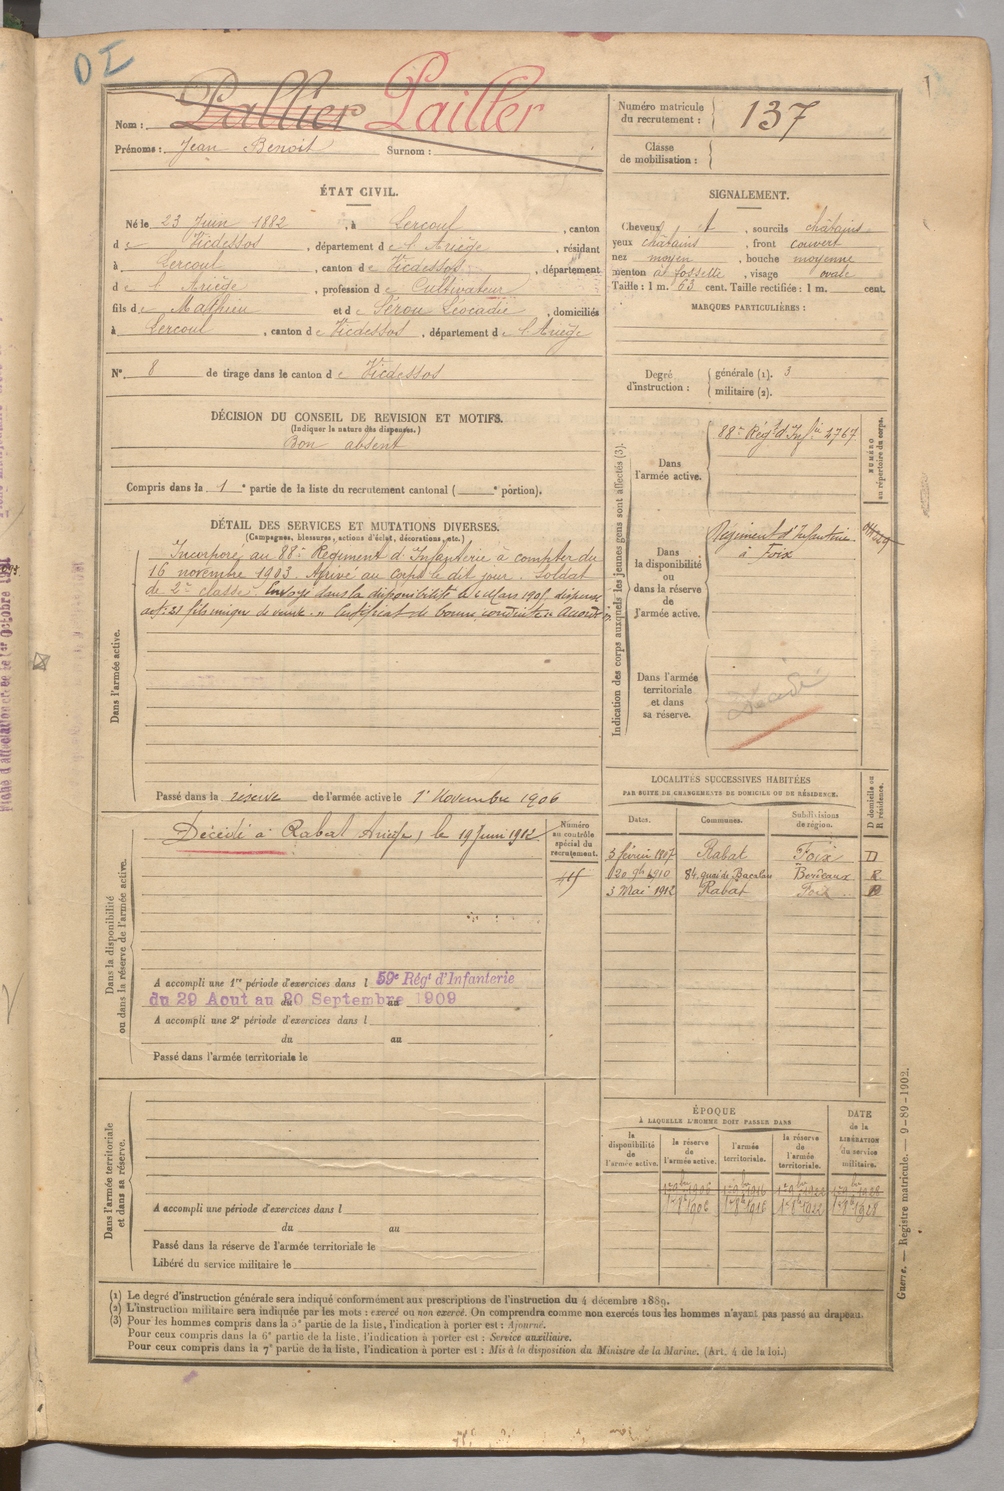 DI
1
Nom : Pallier Pailler
Prénoms : Jean Benoit Surnom :
Numéro matricule du recrutement : 137
Classe de mobilisation :
ÉTAT CIVIL.
Né le 23 Juin 1882, à Lercoul, canton
de Vicdessos, département de l'Ariège, résidant
à Lercoul, canton de Vicdessos, département
de l'Ariège, profession de Cultivateur
fils de Mathieu et de Sérou Léocadie, domiciliés
à Lercoul, canton de Vicdessos, département de l'Ariège
N° 8 de tirage dans le canton de Vicdessos
SIGNALEMENT.
Cheveux, sourcils châtains
yeux châtains, front couvert
nez moyen, bouche moyenne
menton à fossette, visage ovale
Taille : 1 m. 63 cent. Taille rectifiée : 1 m. cent.
MARQUES PARTICULIÈRES :
Degré d'instruction : générale (1). 3
militaire (2).
DÉCISION DU CONSEIL DE REVISION ET MOTIFS.
(Indiquer la nature des dispenses.)
Bon absent
Compris dans la 1e partie de la liste du recrutement cantonal ( e portion).
DÉTAIL DES SERVICES ET MUTATIONS DIVERSES.
(Campagnes, blessures, actions d'éclat, décorations, etc.)
Dans l'armée active.
Incorporé au 88e Régiment d'Infanterie à compter du
16 novembre 1903. Arrivé au corps le dit jour. Soldat
de 2e classe. Envoyé dans la disponibilité le Mars 1905 dispensé
art. 21 fils unique de veuve. Certificat de bonne conduite Accordé
Passé dans la réserve de l'armée active le 1r Novembre 1906
Indication des corps auxquels les jeunes gens sont affectés (3).
NUMÉRO au répertoire du corps.
Dans l'armée active.
88e Régt d'Infie 4767
Dans la disponibilité ou dans la réserve de l'armée active.
Régiment d'Infanterie
à Foix
Dans l'armée territoriale et dans sa réserve.
Décédé
LOCALITÉS SUCCESSIVES HABITÉES
PAR SUITE DE CHANGEMENTS DE DOMICILE OU DE RÉSIDENCE.
D domicile ou R résidence.
Dates. Communes. Subdivisions de région.
3 février 1907 Rabat Foix D
20 9bre 1910 84, quai de Bacalan Bordeaux R
3 Mai 1912 Rabat Foix
Dans la disponibilité ou dans la réserve de l'armée active.
Numéro au contrôle spécial du recrutement.
Décédé à Rabat Ariège, le 19 Juin 1912
A accompli une 1re période d'exercices dans l 59e Régt d'Infanterie
du 29 Aout au 20 Septembre 1909
A accompli une 2e période d'exercices dans l
du au
Passé dans l'armée territoriale le
Dans l'armée territoriale et dans sa réserve.
A accompli une période d'exercices dans l
du au
Passé dans la réserve de l'armée territoriale le
Libéré du service militaire le
ÉPOQUE
À LAQUELLE L'HOMME DOIT PASSER DANS
la disponibilité de l'armée active. la réserve de l'armée active. l'armée territoriale. la réserve de l'armée territoriale.
DATE de la LIBÉRATION du service militaire.
1r 9bre 1906 1r 9bre 1916 1r 9bre 1922 1r 9bre 1928
1r 8bre 1906 1r 8bre 1916 1r 8bre 1922 1r 8bre 1928
(1) Le degré d'instruction générale sera indiqué conformément aux prescriptions de l'instruction du 4 décembre 1889.
(2) L'instruction militaire sera indiquée par les mots : exercé ou non exercé. On comprendra comme non exercés tous les hommes n'ayant pas passé au drapeau.
(3) Pour les hommes compris dans la 5e partie de la liste, l'indication à porter est : Ajourné.
Pour ceux compris dans la 6e partie de la liste, l'indication à porter est : Service auxiliaire.
Pour ceux compris dans la 7e partie de la liste, l'indication à porter est : Mis à la disposition du Ministre de la Marine. (Art. 4 de la loi.)
Guerre. — Registre matricule. — 9-89-1902.